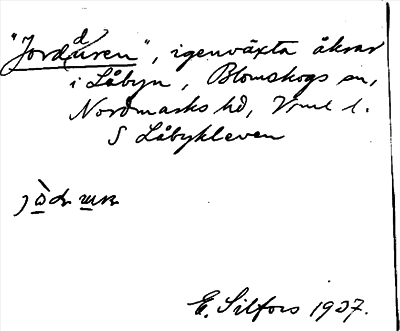 "Jordduren", igenväxta åkrar
i Låbyn, Blomskogs sn,
Nordmarks hd, Vrml l.
S Låbykleven
E. Silfors 1937.